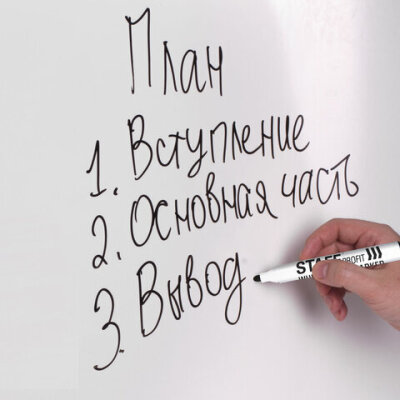 План
1. Вступление
2. Основная часть
3. Вывод
STAFF PROFIT